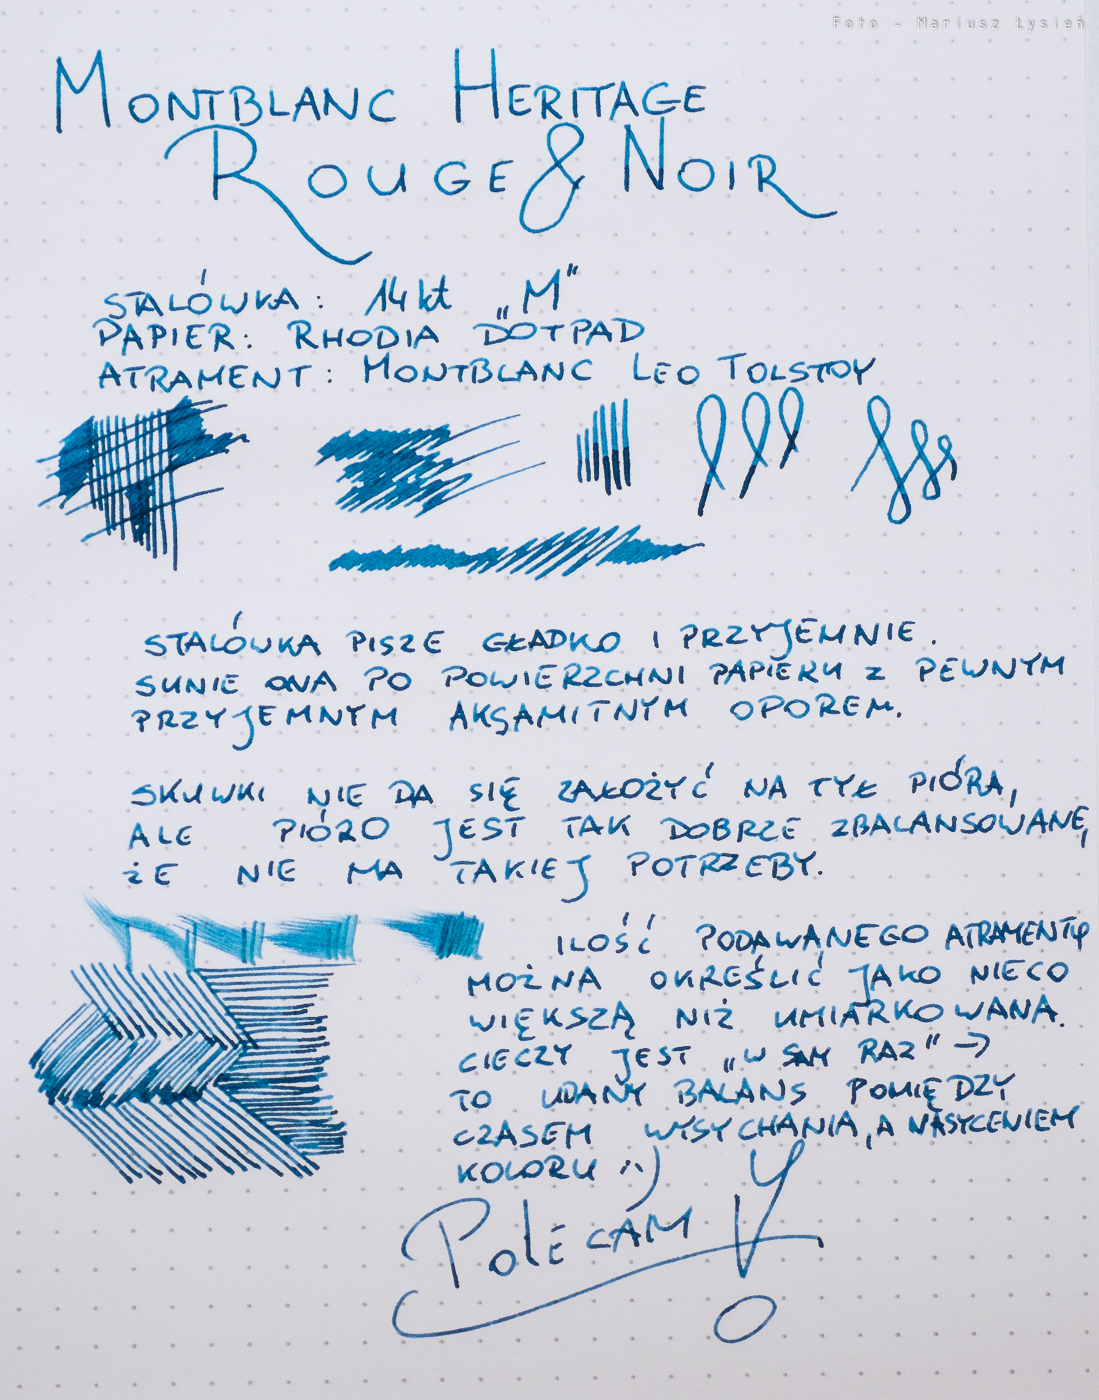 Foto - Mariusz Łysień
MONTBLANC HERITAGE
ROUGE & NOIR
STALÓWKA: 14kt „M”
PAPIER: RHODIA DOTPAD
ATRAMENT: MONTBLANC LEO TOLSTOY
STALÓWKA PISZE GŁADKO I PRZYJEMNIE.
SUNIE ONA PO POWIERZCHNI PAPIERU Z PEWNYM
PRZYJEMNYM AKSAMITNYM OPOREM.
SKUWKI NIE DA SIĘ ZAŁOŻYĆ NA TYŁ PIÓRA,
ALE PIÓRO JEST TAK DOBRZE ZBALANSOWANE,
ŻE NIE MA TAKIEJ POTRZEBY.
ILOŚĆ PODAWANEGO ATRAMENTU
MOŻNA OKREŚLIĆ JAKO NIECO
WIĘKSZĄ NIŻ UMIARKOWANA.
CIECZY JEST „W SAM RAZ” →
TO UDANY BALANS POMIĘDZY
CZASEM WYSYCHANIA, A NASYCENIEM
KOLORU :-)
POLECAM!